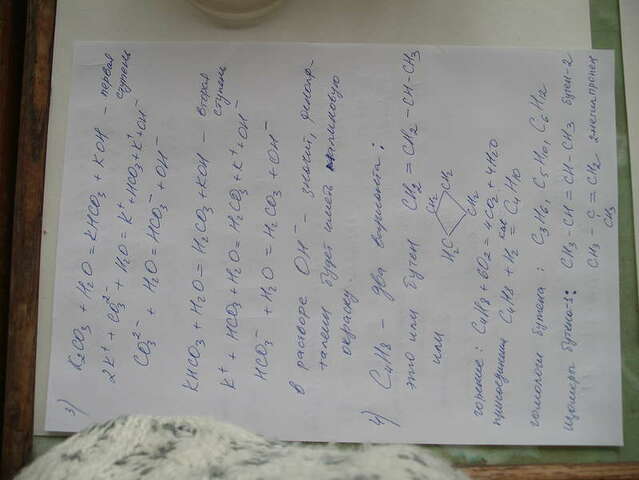 3) K2CO3 + H2O = KHCO3 + KOH - первая ступень
2K+ + CO3 2- + H2O = K+ + HCO3 + K+ + OH-
CO3 2- + H2O = HCO3- + OH-
KHCO3 + H2O = H2CO3 + KOH - вторая ступень
K+ + HCO3 + H2O = H2CO3 + K+ + OH-
HCO3- + H2O = H2CO3 + OH-
в растворе OH- - значит, фенолф-
талеин будет иметь малиновую
окраску.
4) C4H8 - два варианта:
это или бутен CH2 = CH2 - CH - CH3
или H2C CH2 CH2 CH2
горение: C4H8 + 6O2 = 4CO2 + 4H2O
присоединение C4H8 + H2 кат = C4H10
гомологи бутена: C3H6, C5H10, C6H12
изомеры бутена-1: CH3 - CH = CH - CH3 бутен-2
CH3 - C = CH2 2метилпропен
CH3